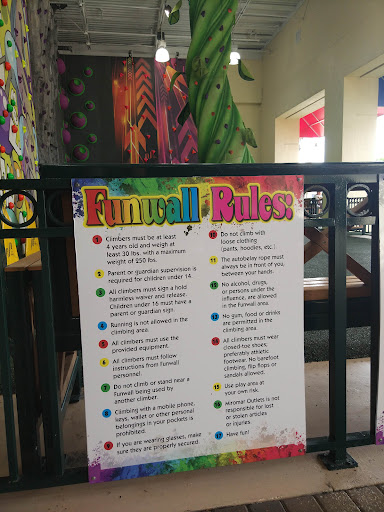 Funwall Rules:
1 Climbers must be at least
4 years old and weigh at
least 30 lbs. with a maximum
weight of 250 lbs.
2 Parent or guardian supervision is
required for children under 14.
3 All climbers must sign a hold
harmless waiver and release.
Children under 18 must have a
parent or guardian sign.
4 Running is not allowed in the
climbing area.
5 All climbers must use the
provided equipment.
6 All climbers must follow
instructions from Funwall
personnel.
7 Do not climb or stand near a
Funwall being used by
another climber.
8 Climbing with a mobile phone,
keys, wallet or other personal
belongings in your pockets is
prohibited.
9 If you are wearing glasses, make
sure they are properly secured.
10 Do not climb with
loose clothing
(pants, hoodies, etc.)
11 The autobelay rope must
always be in front of you,
between your hands.
12 No alcohol, drugs,
or persons under the
influence, are allowed
in the Funwall area.
13 No gum, food or drinks
are permitted in the
climbing area.
14 All climbers must wear
closed-toe shoes;
preferably athletic
footwear. No barefoot
climbing, flip flops or
sandals allowed.
15 Use play area at
your own risk.
16 Miromar Outlets is not
responsible for lost
or stolen articles
or injuries.
17 Have fun!